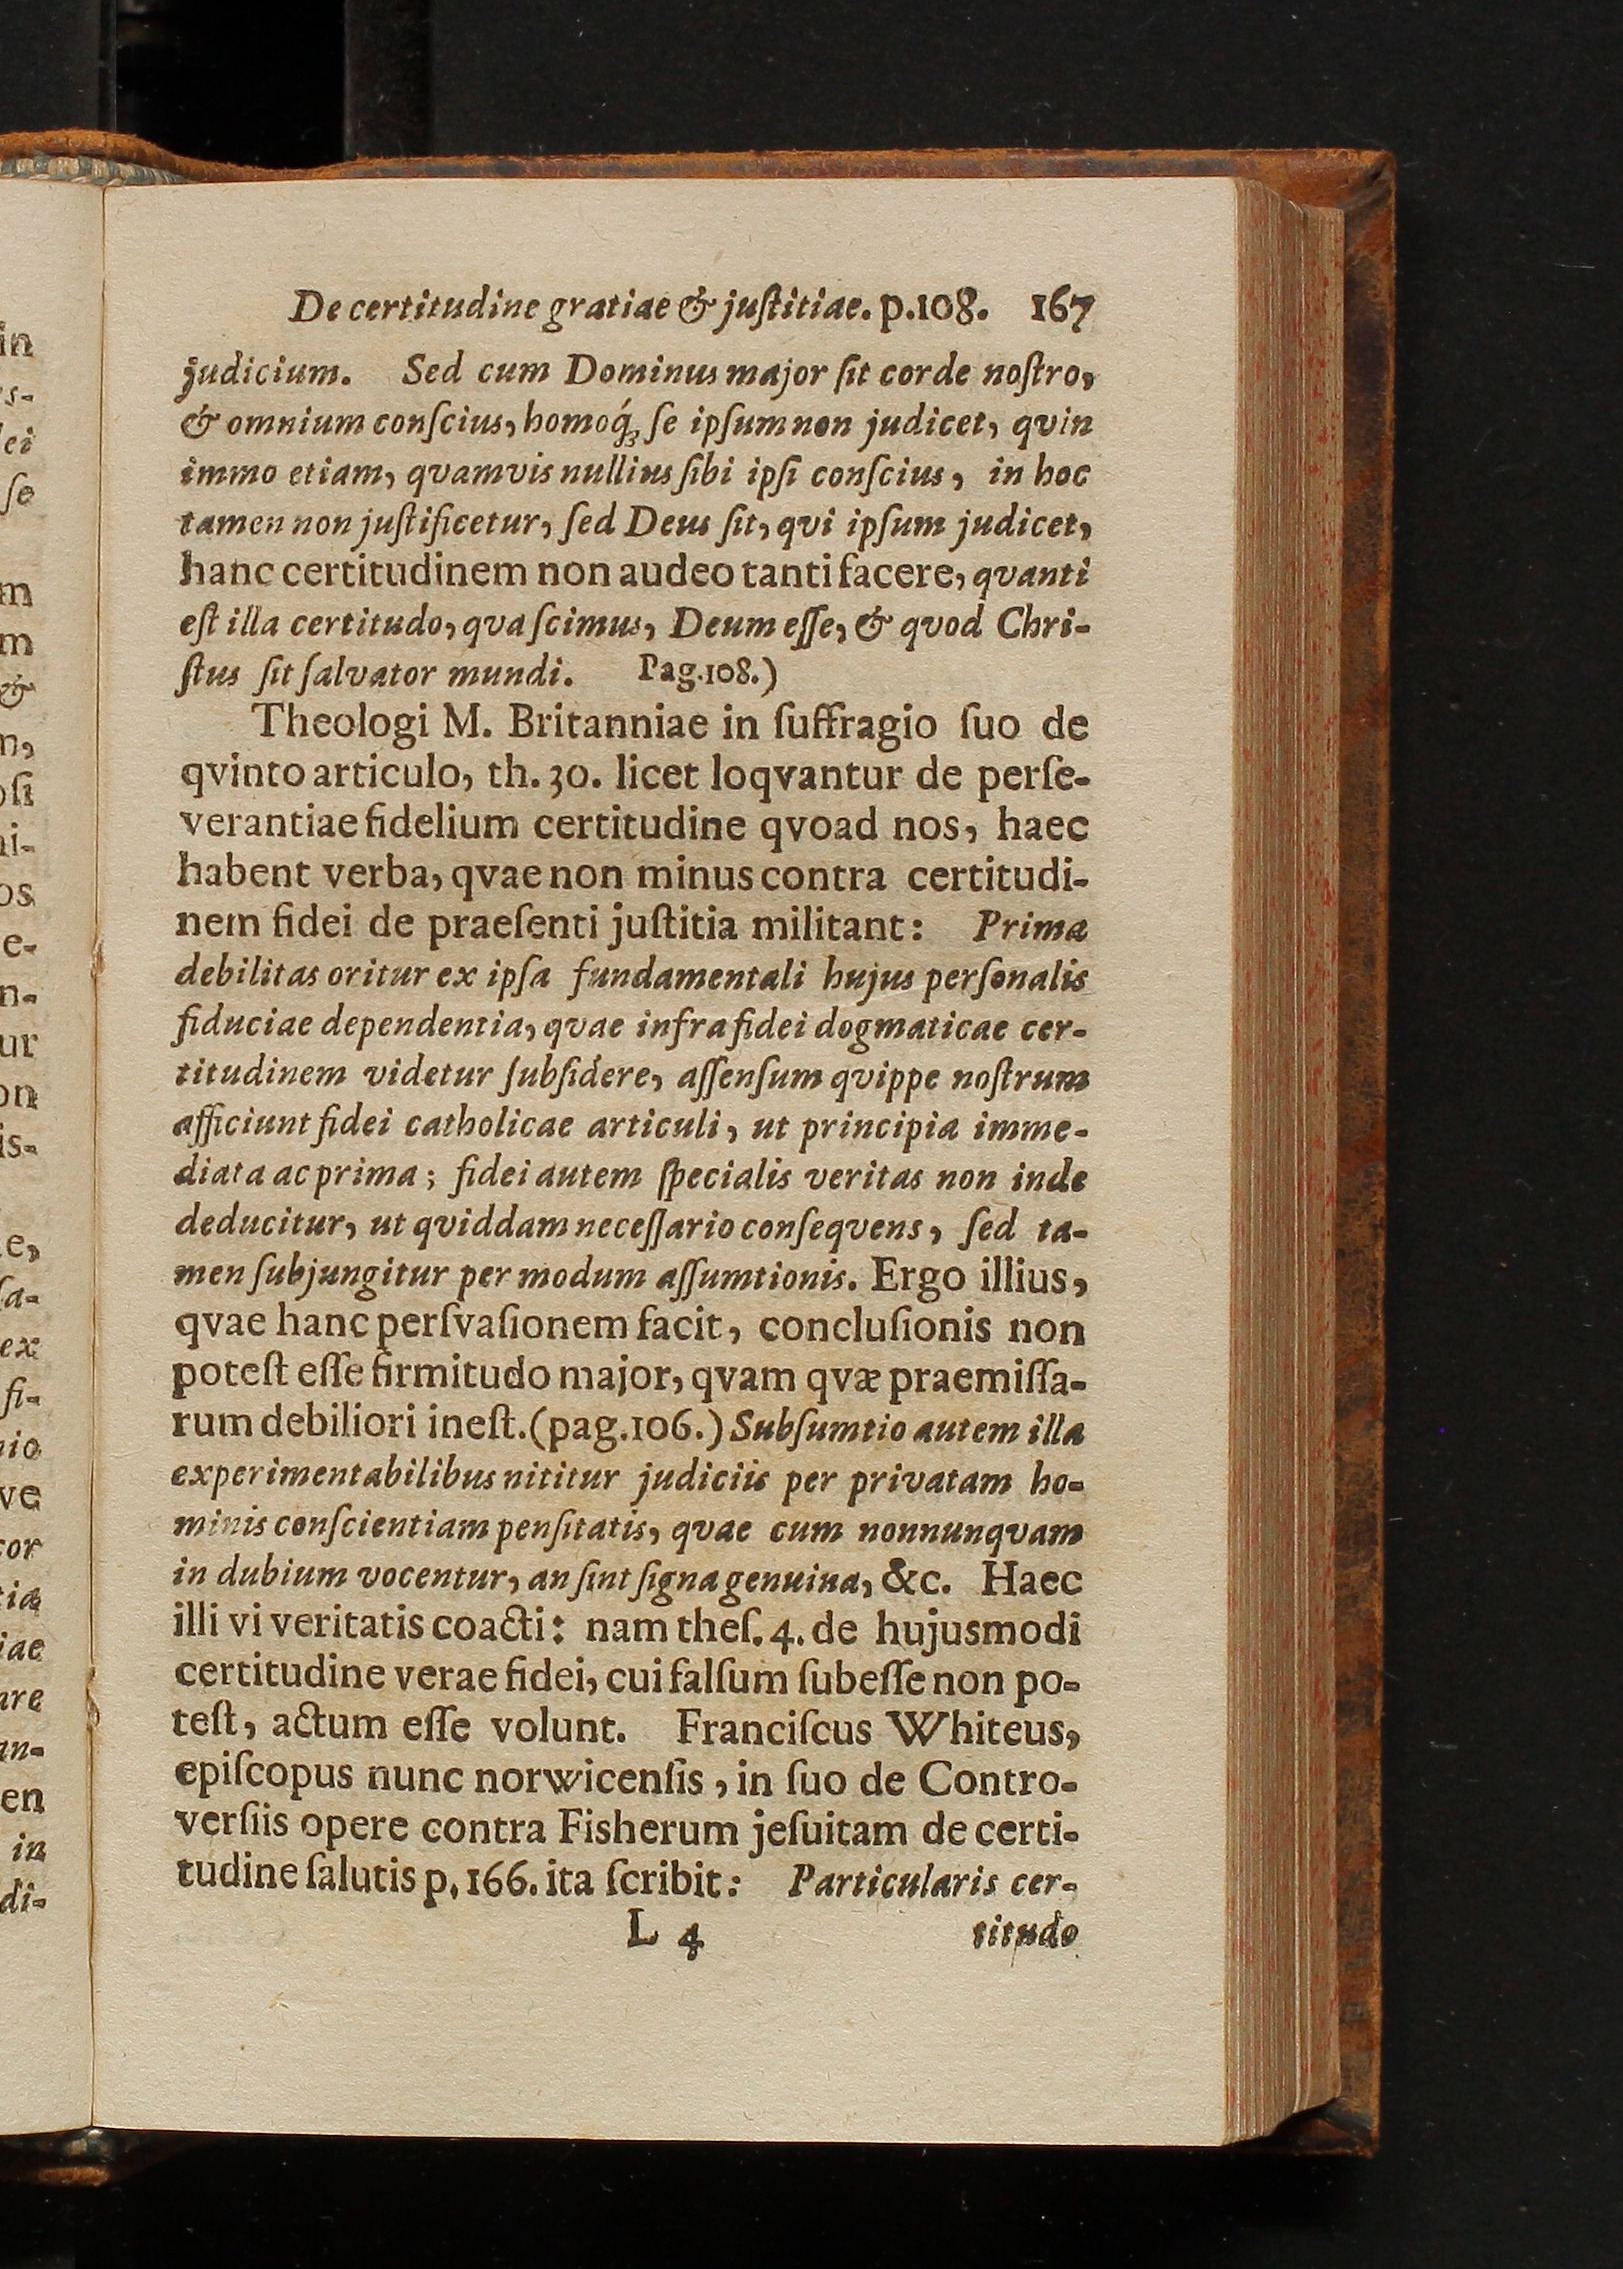 De certitudine gratiae & juſtitiae. p.108. 167
judicium. Sed cum Dominus major ſit corde noſtro,
& omnium conſcius, homoq́; ſe ipſum non judicet, qvin
immo etiam, quamvis nullius ſibi ipſi conſcius, in hoc
tamen non juſtificetur, ſed Deus ſit, qvi ipſum judicet,
hanc certitudinem non audeo tanti facere, qvanti
eſt illa certitudo, qva ſcimus, Deum eſſe, & qvod Chri-
ſtus ſit ſalvator mundi. Pag.108.)
Theologi M. Britanniae in ſuffragio ſuo de
qvinto articulo, th. 30. licet loqvantur de perſe-
verantiae fidelium certitudine qvoad nos, haec
habent verba, qvae non minus contra certitudi-
nem fidei de praeſenti juſtitia militant: Prima
debilitas oritur ex ipſa fundamentali hujus perſonalis
fiduciae dependentia, qvae infra fidei dogmaticae cer-
titudinem videtur ſubſidere, aſſenſum qvippe noſtrum
afficiunt fidei catholicae articuli, ut principia imme-
diata ac prima; fidei autem ſpecialis veritas non inde
deducitur, ut qviddam neceſſario conſeqvens, ſed ta-
men ſubjungitur per modum aſſumtionis. Ergo illius,
qvae hanc perſvaſionem facit, concluſionis non
poteſt eſſe firmitudo major, qvam qvæ praemiſſa-
rum debiliori ineſt. (pag.106.) Subſumtio autem illa
experimentabilibus nititur judiciis per privatam ho-
minis conſcientiam penſitatis, qvae cum nonnunqvam
in dubium vocentur, an ſint ſigna genuina, &c. Haec
illi vi veritatis coacti: nam theſ. 4. de hujusmodi
certitudine verae fidei, cui falſum ſubeſſe non po-
teſt, actum eſſe volunt. Franciſcus Whiteus,
epiſcopus nunc norwicenſis, in ſuo de Contro-
verſiis opere contra Fisherum jeſuitam de certi-
tudine ſalutis p. 166. ita ſcribit: Particularis cer-
L 4 titudo